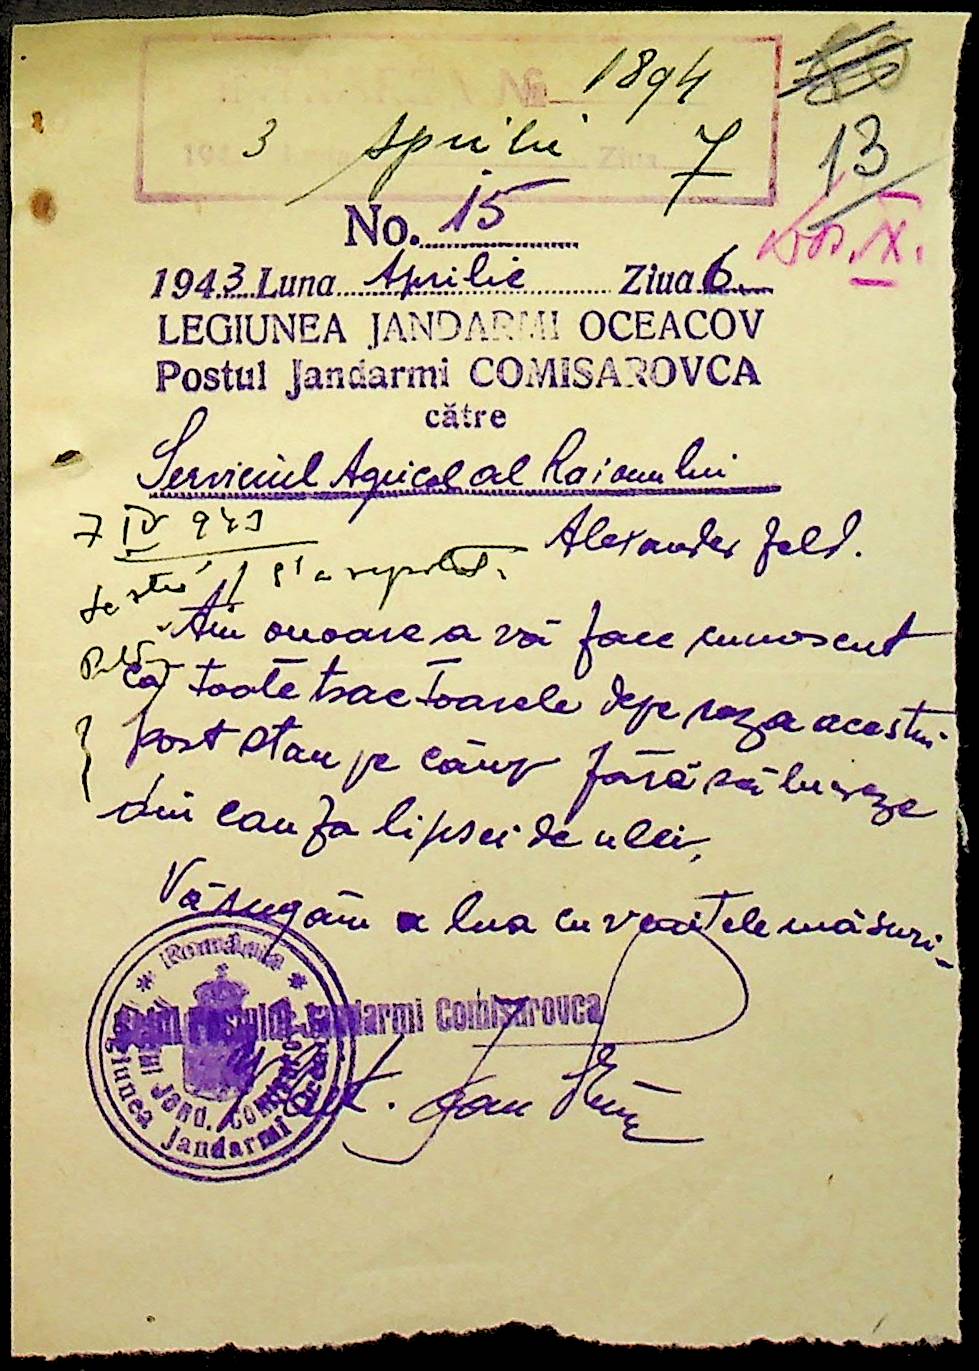 INTRAREA No. 1894
194 3 Luna Aprilie Ziua 7
13
Dos. IX.
No. 15
1943 Luna Aprilie Ziua 6.
LEGIUNEA JANDARMI OCEACOV
Postul Jandarmi COMISAROVCA
către
Serviciul Agricol al Raionului
Alexander feld.
7 IV 943
Am onoare a vă face cunoscut
că toate tractoarele depe raza acestui
post stau pe câmp fără să lucreze
din cauza lipsei de ulei.
Vă rugăm a lua cuvenitele măsuri.
Șeful Postului Jandarmi Comisarovca
Plut.
România
Legiunea Jandarmi